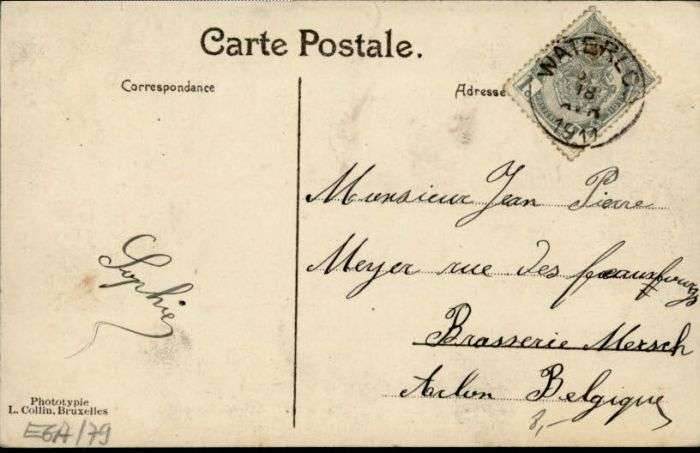 Carte Postale.
Correspondance
Adresse
WATERLO
18
1911
1
Monsieur Jean Pierre
Meyer rue des feauxbourgs
Brasserie Mersch
Arlon Belgique
Sophie
Phototypie
L. Collin, Bruxelles
E6A/79
3,-